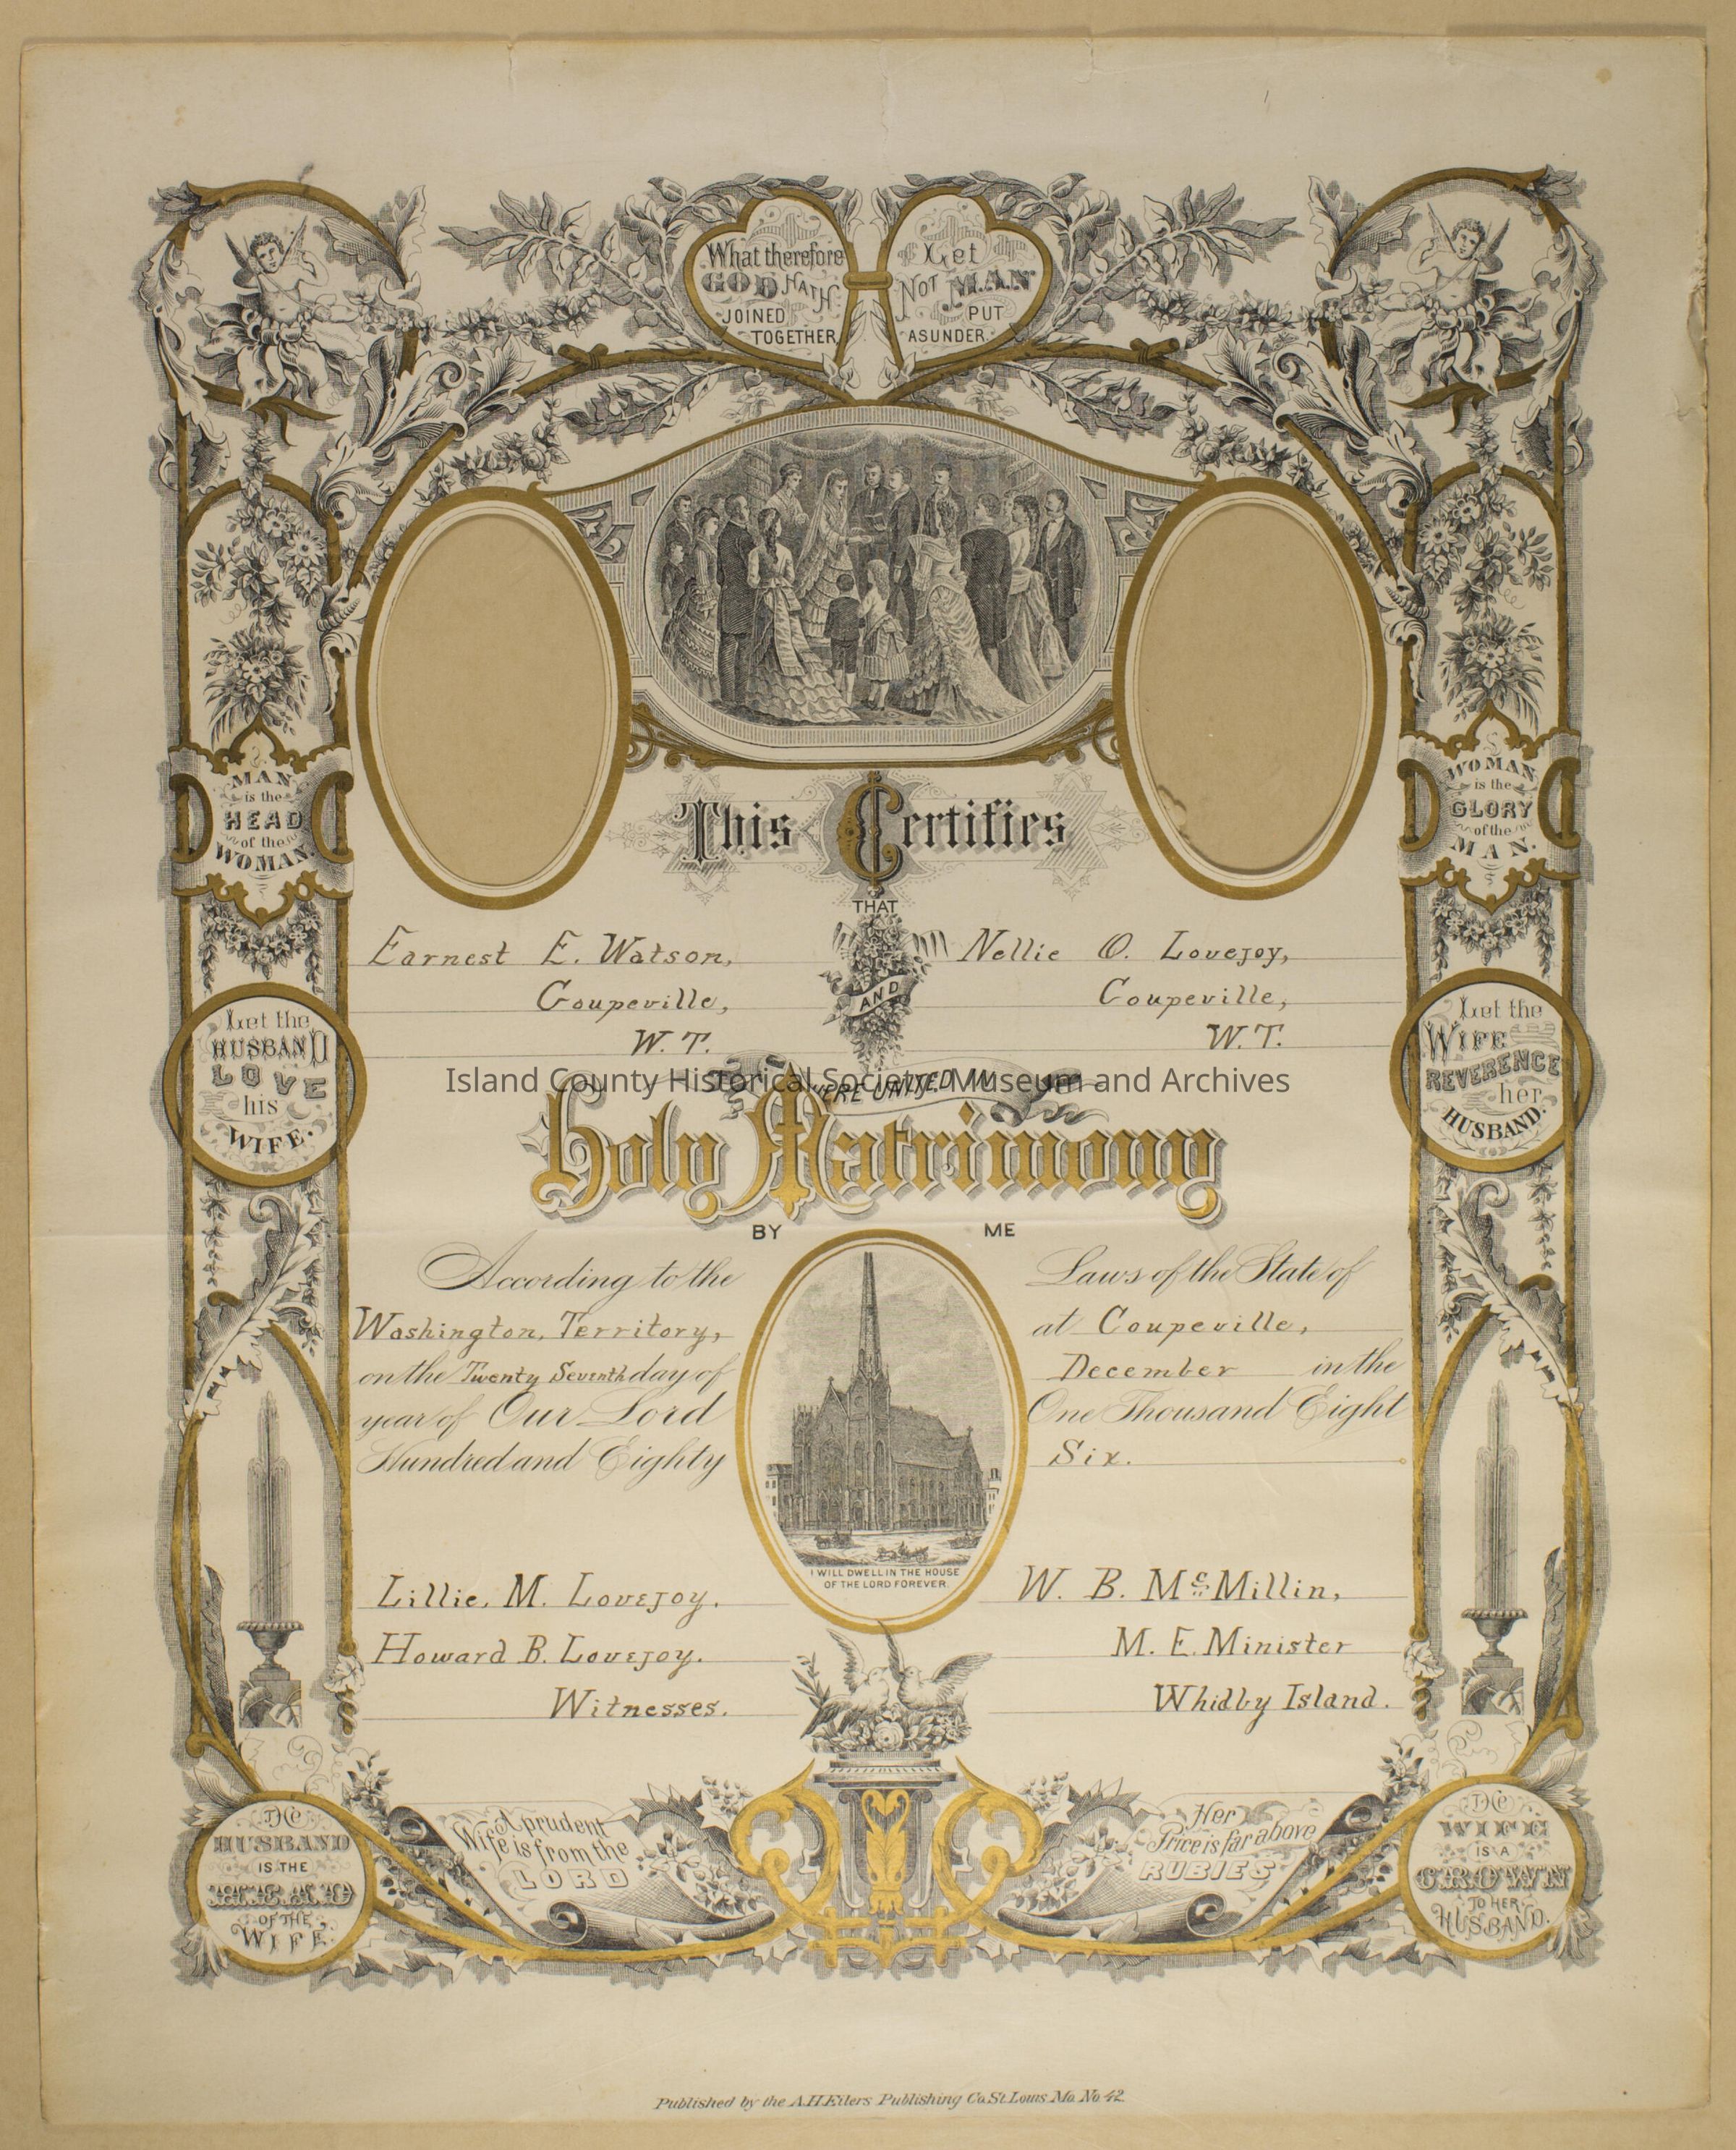 What therefore
GOD HATH
JOINED
TOGETHER
Let
NOT MAN
PUT
ASUNDER.
MAN
is the
HEAD
of the
WOMAN.
WOMAN
is the
GLORY
of the
MAN.
This Certifies
THAT
Earnest E. Watson,
Coupeville,
W. T.
AND
Nellie O. Lovejoy,
Coupeville,
W. T.
Let the
HUSBAND
LOVE
his
WIFE.
Let the
WIFE
REVERENCE
her
HUSBAND.
WERE UNITED IN
Island County Historical Society Museum and Archives
Holy Matrimony
BY ME
According to the Laws of the State of
Washington, Territory, at Coupeville,
on the Twenty Seventh day of December in the
year of Our Lord One Thousand Eight
Hundred and Eighty Six.
I WILL DWELL IN THE HOUSE
OF THE LORD FOREVER.
Lillie, M. Lovejoy.
Howard B. Lovejoy.
Witnesses.
W. B. McMillin,
M. E. Minister
Whidby Island.
THE
HUSBAND
IS THE
HEAD
OF THE
WIFE.
A prudent
Wife is from the
LORD
Her
Price is far above
RUBIES
THE
WIFE
IS A
CROWN
TO HER
HUSBAND.
Published by the A.H.Eilers Publishing Co. St. Louis Mo. No 42